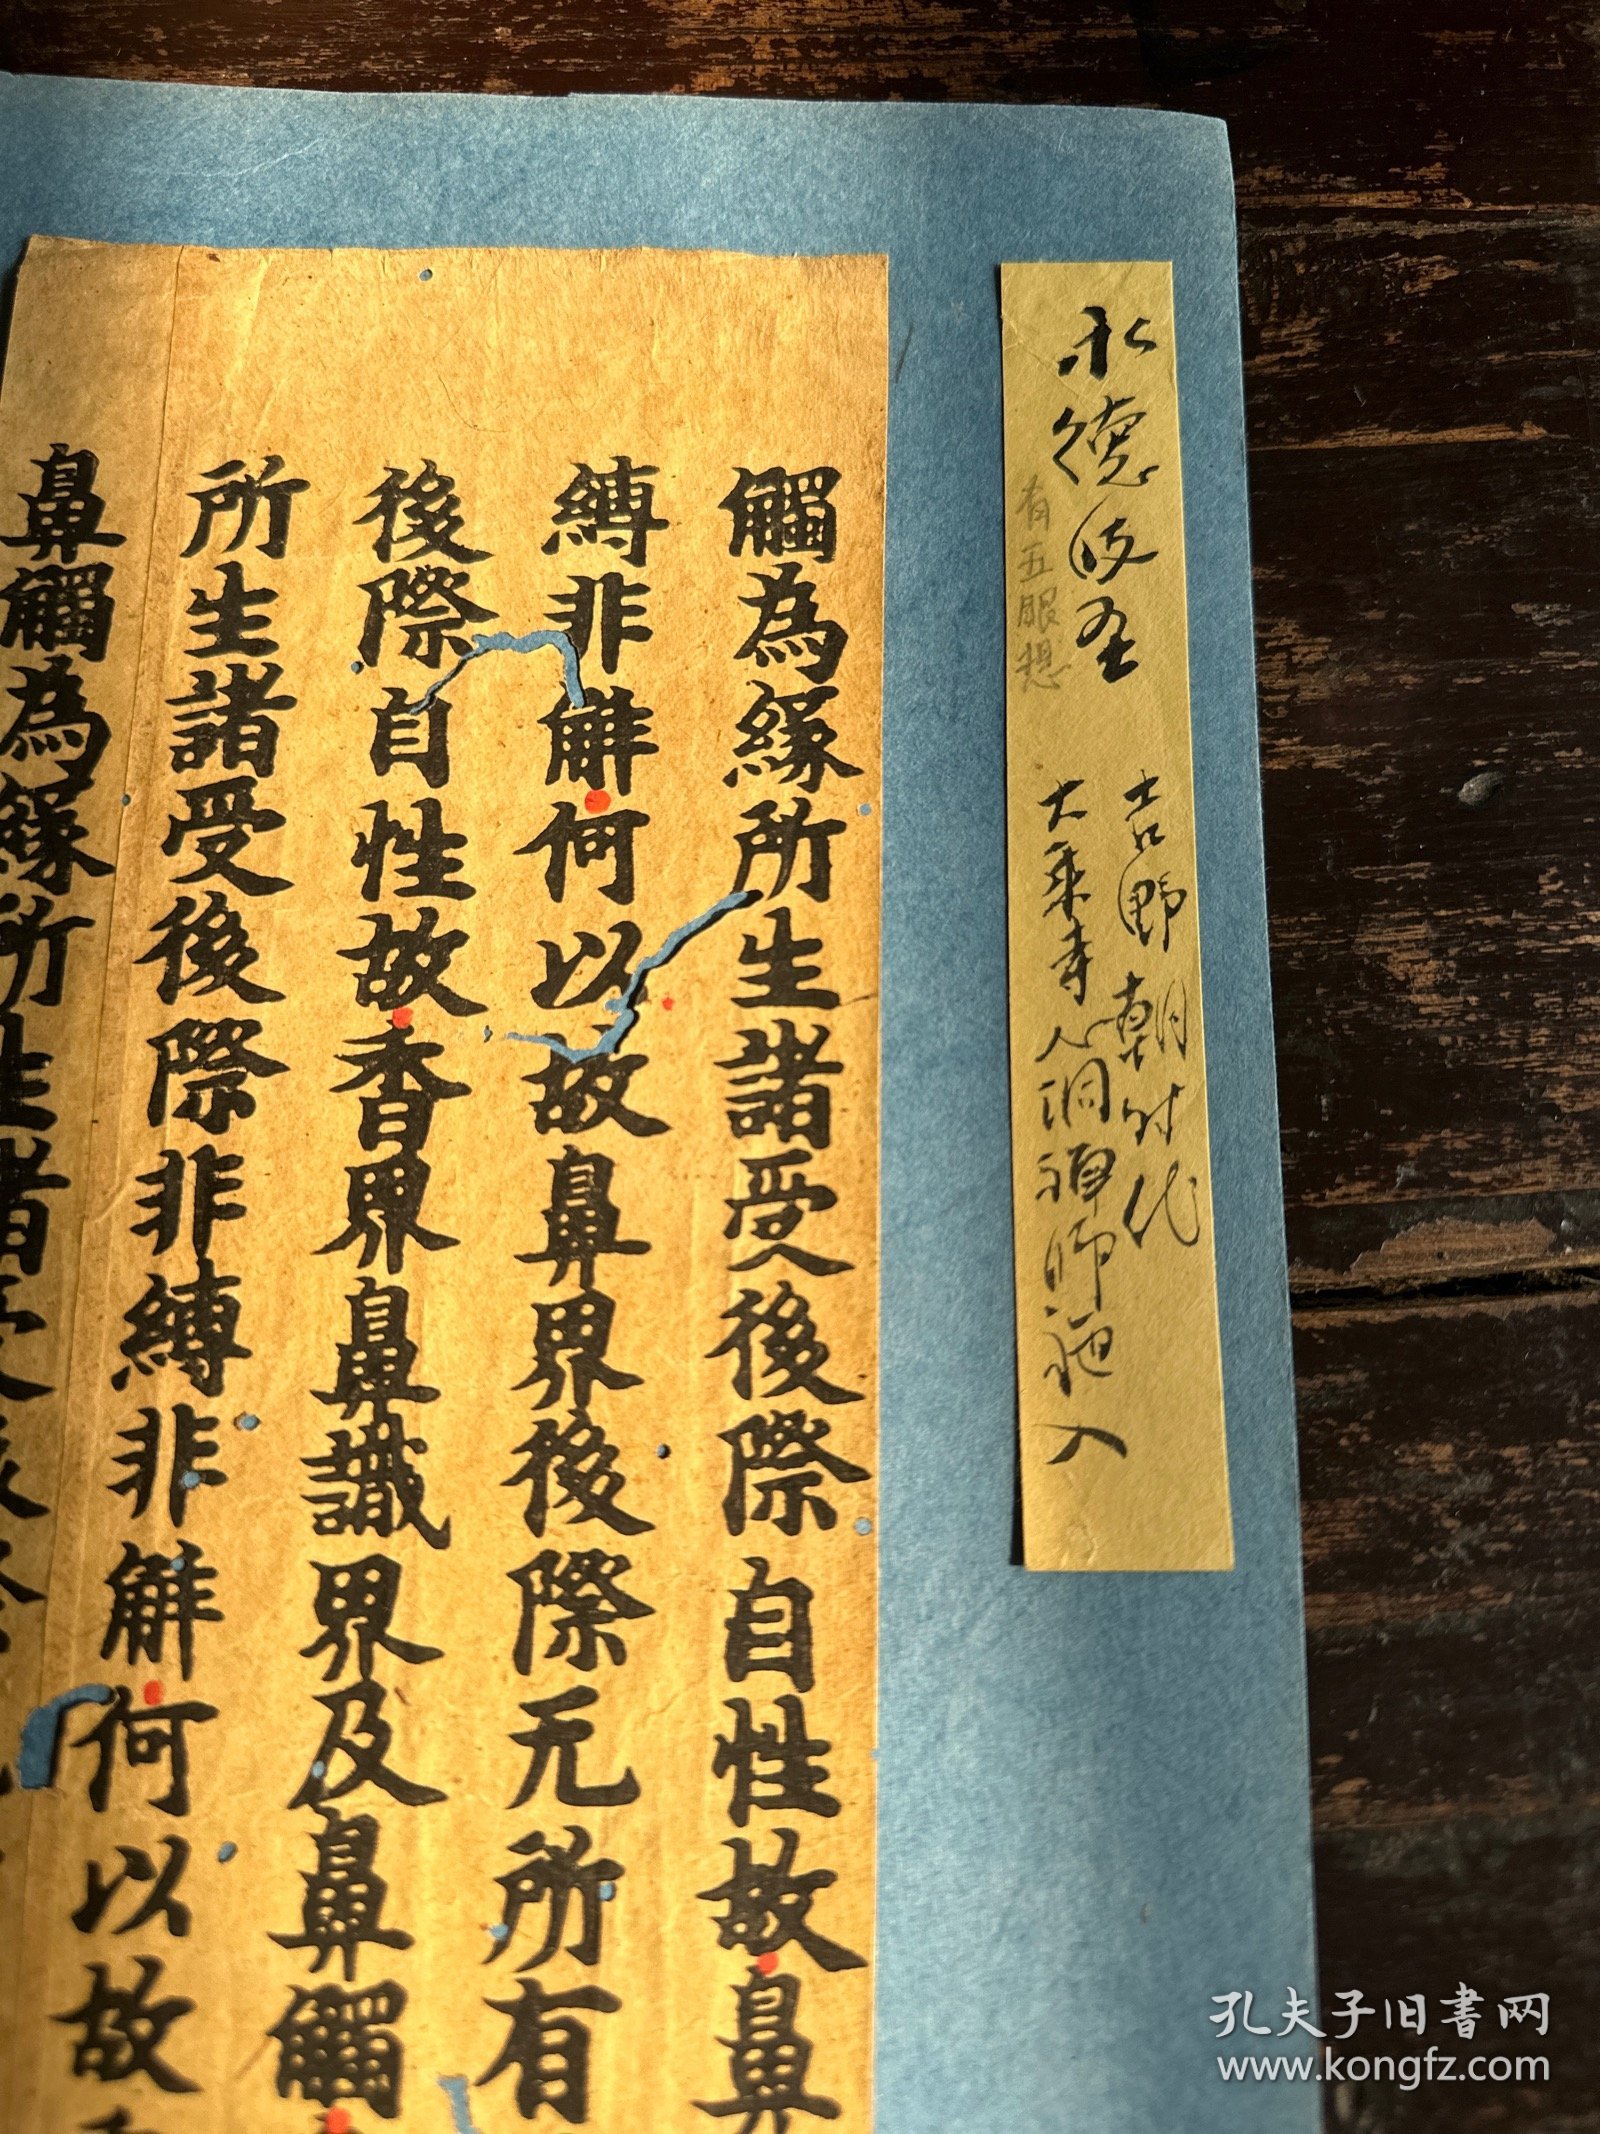 永德
有五眼想
吉野朝时代
大乘寺 洞禅师 入
觸為緣所生諸受後際自性故鼻
縛非解何以故鼻界後際无所有
後際自性故香界鼻識界及鼻觸
所生諸受後際非縛非解何以故
鼻觸為緣所生諸受
孔夫子旧書网
www.kongfz.com